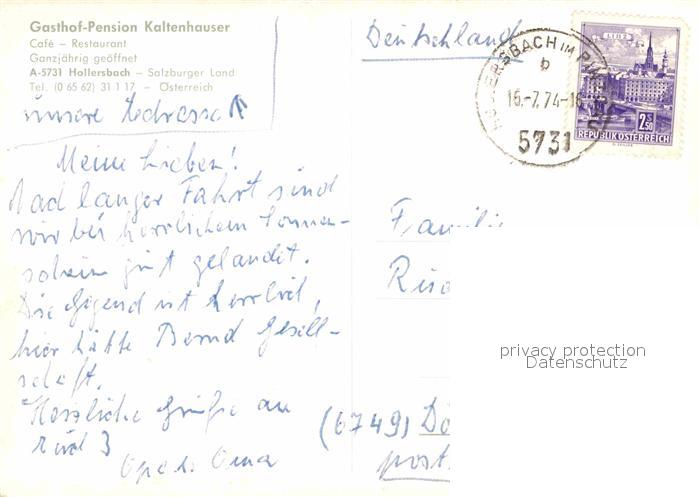 Gasthof-Pension Kaltenhauser
Café – Restaurant
Ganzjährig geöffnet
A-5731 Hollersbach – Salzburger Land
Tel. (0 65 62) 31 1 17 – Österreich
unsere Adresse
Meine Lieben!
Nach langer Fahrt sind
wir bei herrlichem Sonnen-
schein gut gelandet.
Die Gegend ist herrlich,
hier hätte Bernd Gesell-
schaft.
Herzliche Grüße an
Euch 3
Opa u. Oma
Deutschland
HOLLERSBACH IM PINZGAU
b
16.-7.74-16
5731
LINZ
2S50
REPUBLIK ÖSTERREICH
Familie
privacy protection
Datenschutz
(6749)
post